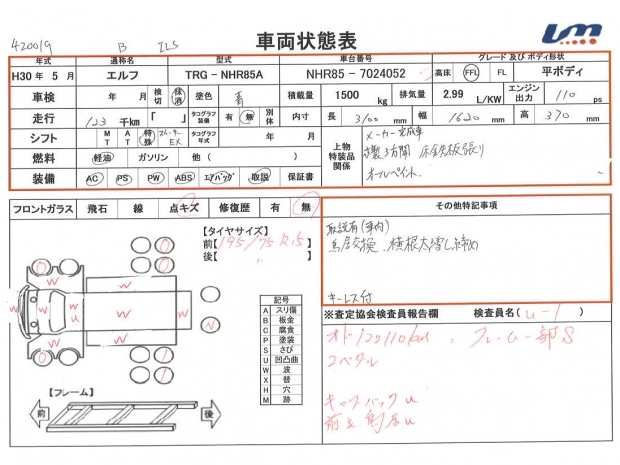 420019 B ILS
車両状態表
年式 通称名 型式 車台番号 グレード 及び ボディ形状
H30 年 5 月 エルフ TRG - NHR85A NHR85 - 7024052 高床 FFL FL 平ボディ
車検 年 月 検切 抹消 塗色 青 積載量 1500 kg 排気量 2.99 L/KW エンジン出力 110 ps
走行 123 千km 「 」 タコグラフ装備 有 無 別体 内寸 長 3100 mm 幅 1620 mm 高 370 mm
シフト MT AT 特殊 スムーサーEX タコグラフ年式 年 月 上物特装品関係 メーカー完成車
燃料 軽油 ガソリン 他 ( ) 三方開 床鉄板張り
装備 AC PS PW ABS エアバッグ 取説 保証書 オールペイント.
フロントガラス 飛石 線 点キズ 修復歴 有 無 その他特記事項
【タイヤサイズ】 取説有(車内)
前【195/75 R15】
後【 〃 】
キーレス付
※査定協会検査員報告欄 検査員名( u-1 )
記号
A スリ傷
B 板金
C 腐食
P 塗装
S さび
U 凹凸曲
W 波
X 替
H 穴
M 跡
オド120110km , フレーム一部S
コペタル
キャブバックu
前立鳥居u
【フレーム】
前 後